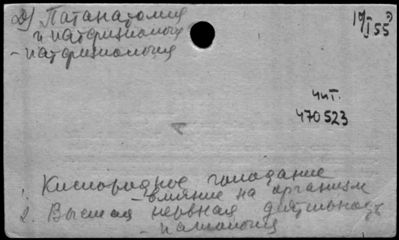 Д) Патанатомия
и патфизиология
- патфизиология
19/I 55
чит.
470523
1. Кислородное голодание
- влияние на организм
2. Высшая нервная деятельность
- патология